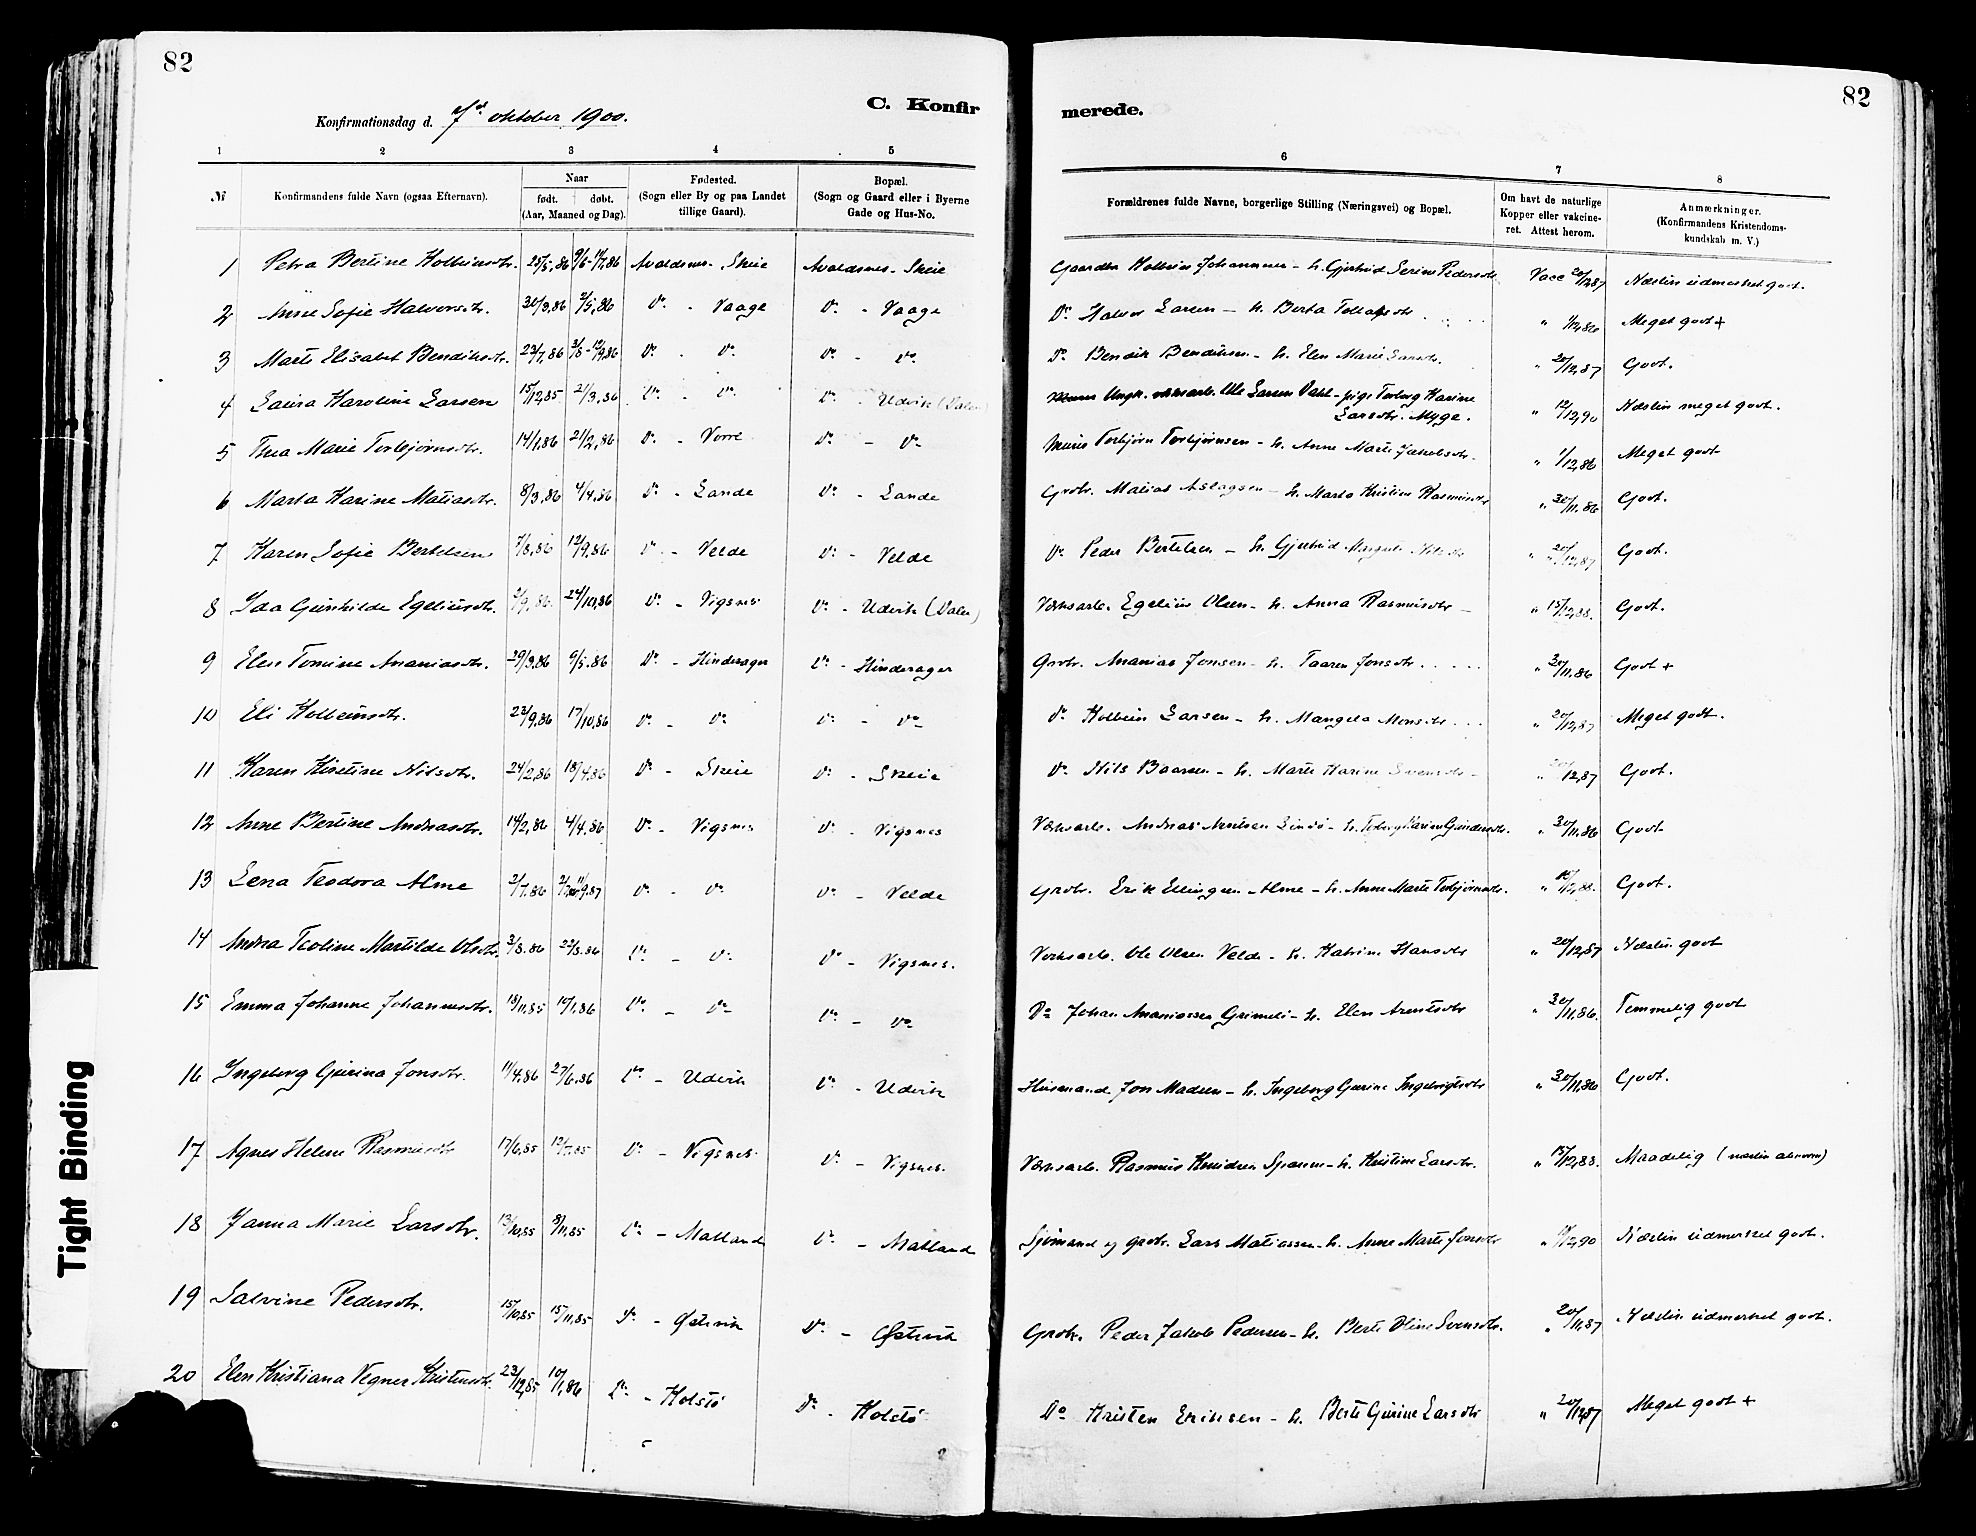 82
82
C. Konfir
merede.
Konfirmationsdag d. 7de oktober 1900.
1 2 3 4 5 6 7 8
№ Konfirmandens fulde Navn (ogsaa Efternavn). Naar født. døbt. (Aar, Maaned og Dag). Fødested. (Sogn eller By og paa Landet tillige Gaard). Bopæl. (Sogn og Gaard eller i Byerne Gade og Hus-No. Forældrenes fulde Navne, borgerlige Stilling (Næringsvei) og Bopæl. Om havt de naturlige Kopper eller vakcineret. Attest herom. Anmærkninger. (Konfirmandens Kristendomskundskab m. V.)
1 Petra Bertine Kolbeinsdtr. 25/5,86 9/6-11/7,86 Avaldsnes - Skeie Avaldsnes - Skeie Gaardbr Kolbein Johannesen - h. Gjertrud Serine Pedersdtr Vacc 20/12,87 Næsten udmerket godt.
2 Anne Sofie Halvorsdtr. 30/3,86 2/5,86 Do - Vaage Do - Vaage Do Halvor Larsen - h. Berta Tollafsdtr " 1/12,86 Meget godt +
3 Marte Elisabet Bendiksdtr. 23/7,86 Do - Do Do - Do Do Bendik Bendiksen - h. Elen Marie Larsdtr. " 20/12,87 Godt.
4 Laura Karoline Larsen 15/12,85 21/3,86 Do - Do Do - Udvik (Dalen) Ungk. verksarb. Ole Larsen Dahl - pige Torborg Karine Larsdtr. Myge. " 12/12,90 Næsten meget godt.
5 Thea Marie Torbjørnsdtr. 14/1,86 21/2,86 Do - Vorre Do - Do Murer Torbjørn Torbjørnsen - h. Anne Marte Jakobsdtr. " 1/12,86 Meget godt
6 Marta Karine Matiasdtr. 8/3,86 4/4,86 Do - Lande Do - Lande Grbr. Matias Aslagsen - h. Marta Kristine Rasmusdtr " 30/11,86 Godt.
7 Karen Sofie Bertelsen 7/8,86 12/9,86 Do - Velde Do - Velde Do Peder Bertelsen - h. Gjertrud Margrete " 20/12,87 Godt.
8 Ida Gunhilde Egeliusdtr. 2/9,86 24/10,86 Do - Vigsnes Do - Udvik (Dalen) Verksarb. Egelius Olsen - h. Anna Rasmusdtr " 15/12,88. Godt.
9 Elen Tomine Ananiasdtr. 29/3,86 6/5,86 Do - Hinderager Do - Hinderager Grbr. Ananias Jonsen - h. Taaren Jonsdtr " 30/11,86 Godt +
10 Eli Kolbeinsdtr. 23/9,86 17/10,86 Do - Do Do - Do Do Kolbein Larsen - h. Mangela Monsdtr " 20/12,87 Meget godt.
11 Karen Kirstine Nilsdtr. 24/2,86 18/4,86 Do - Skeie Do - Skeie Do Nils Baarsen - h. Marte Karine Svensdtr " 20/12,87 Godt.
12 Anne Bertine Andreasdtr. 14/2,86 4/4,86 Do - Vigsnes Do - Vigsnes Verksarb. Andreas Lindø - h. Torborg Karine Gundersdtr. " 30/11,86 Godt
13 Lena Teodora Alme 2/7,86 Do - Do Do - Velde Grbr. Erik Ellingsen Alme - h. Anne Marte Torbjørnsdtr. Godt.
14 Andrea Teoline Martilde Olsdtr. 3/8.86 22/8.86 Do - Do Do - Vigsnes. Verksarb. Ole Olsen Velde - h. Katrine Hansdtr " 20/12,87 Næsten godt
15 Emma Johanne Johannesdtr. 18/11,85 Do - Do Do - Do Do Johan Ananiassen Grimeli - h. Elen Arentsdtr " 30/11,86. Temmelig godt
16 Ingeborg Gurina Jonsdtr. 11/4,86 27/6,86 Do - Udvik Do - Udvik Husmand Jon Madsen - h. Ingeborg Gurine Ingebrigtsdtr " 30/11,86 Godt.
17 Agnes Helene Rasmusdtr 17/6,85 12/7,85 Do - Vigsnes. Do - Vigsnes. Verksarb. Rasmus Knudsen - h. Kristine Larsdtr. " 15/12,88. Maadelig
18 Janna Marie Larsdtr. 13/10,85 8/11,85 Do - Matland Do - Matland Sjømand og grbr. Lars Matiassen - h. Anne Marte Jonsdtr Næsten udmerket godt.
19 Salvine Pedersdtr. 15/10,85 15/11,85 Do - Østvik Do - Østvik Grbr. Peder Jakob Pedersen - h. Berte Oline Svensdtr. " 20/11,87 Næsten udmerket godt.
20 Elen Kristiana Vegner Kristensdtr. 23/12,85 10/1,86 Do - Kolstø Do - Kolstø Do Kristen Eriksen - h. Berte Gurine Larsdtr " 20/12,87 Meget godt +
Tight Binding